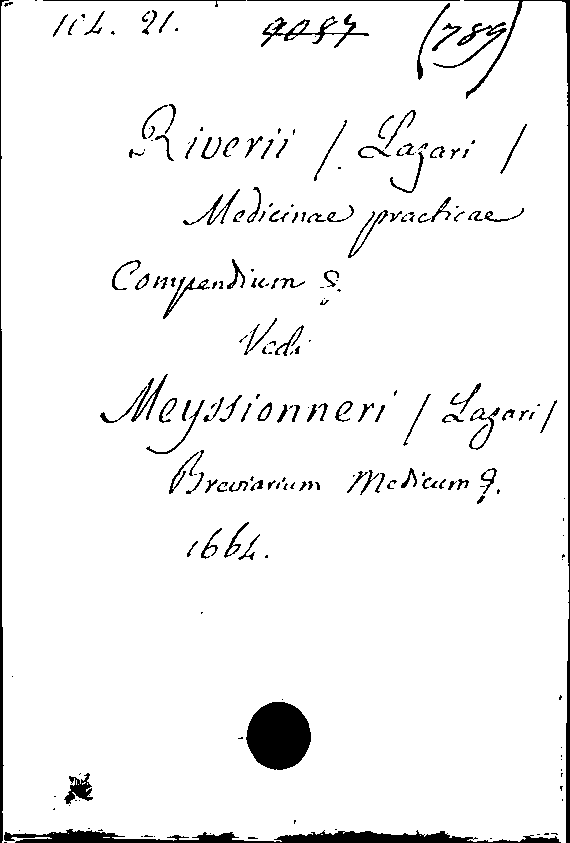 104. 21. 9087 (789)
Riverii /. Lazari /
Medicinae practicae
Compendium &.
Vedi
Meyssionneri / Lazari /
Breviarium Medicum &.
1664.